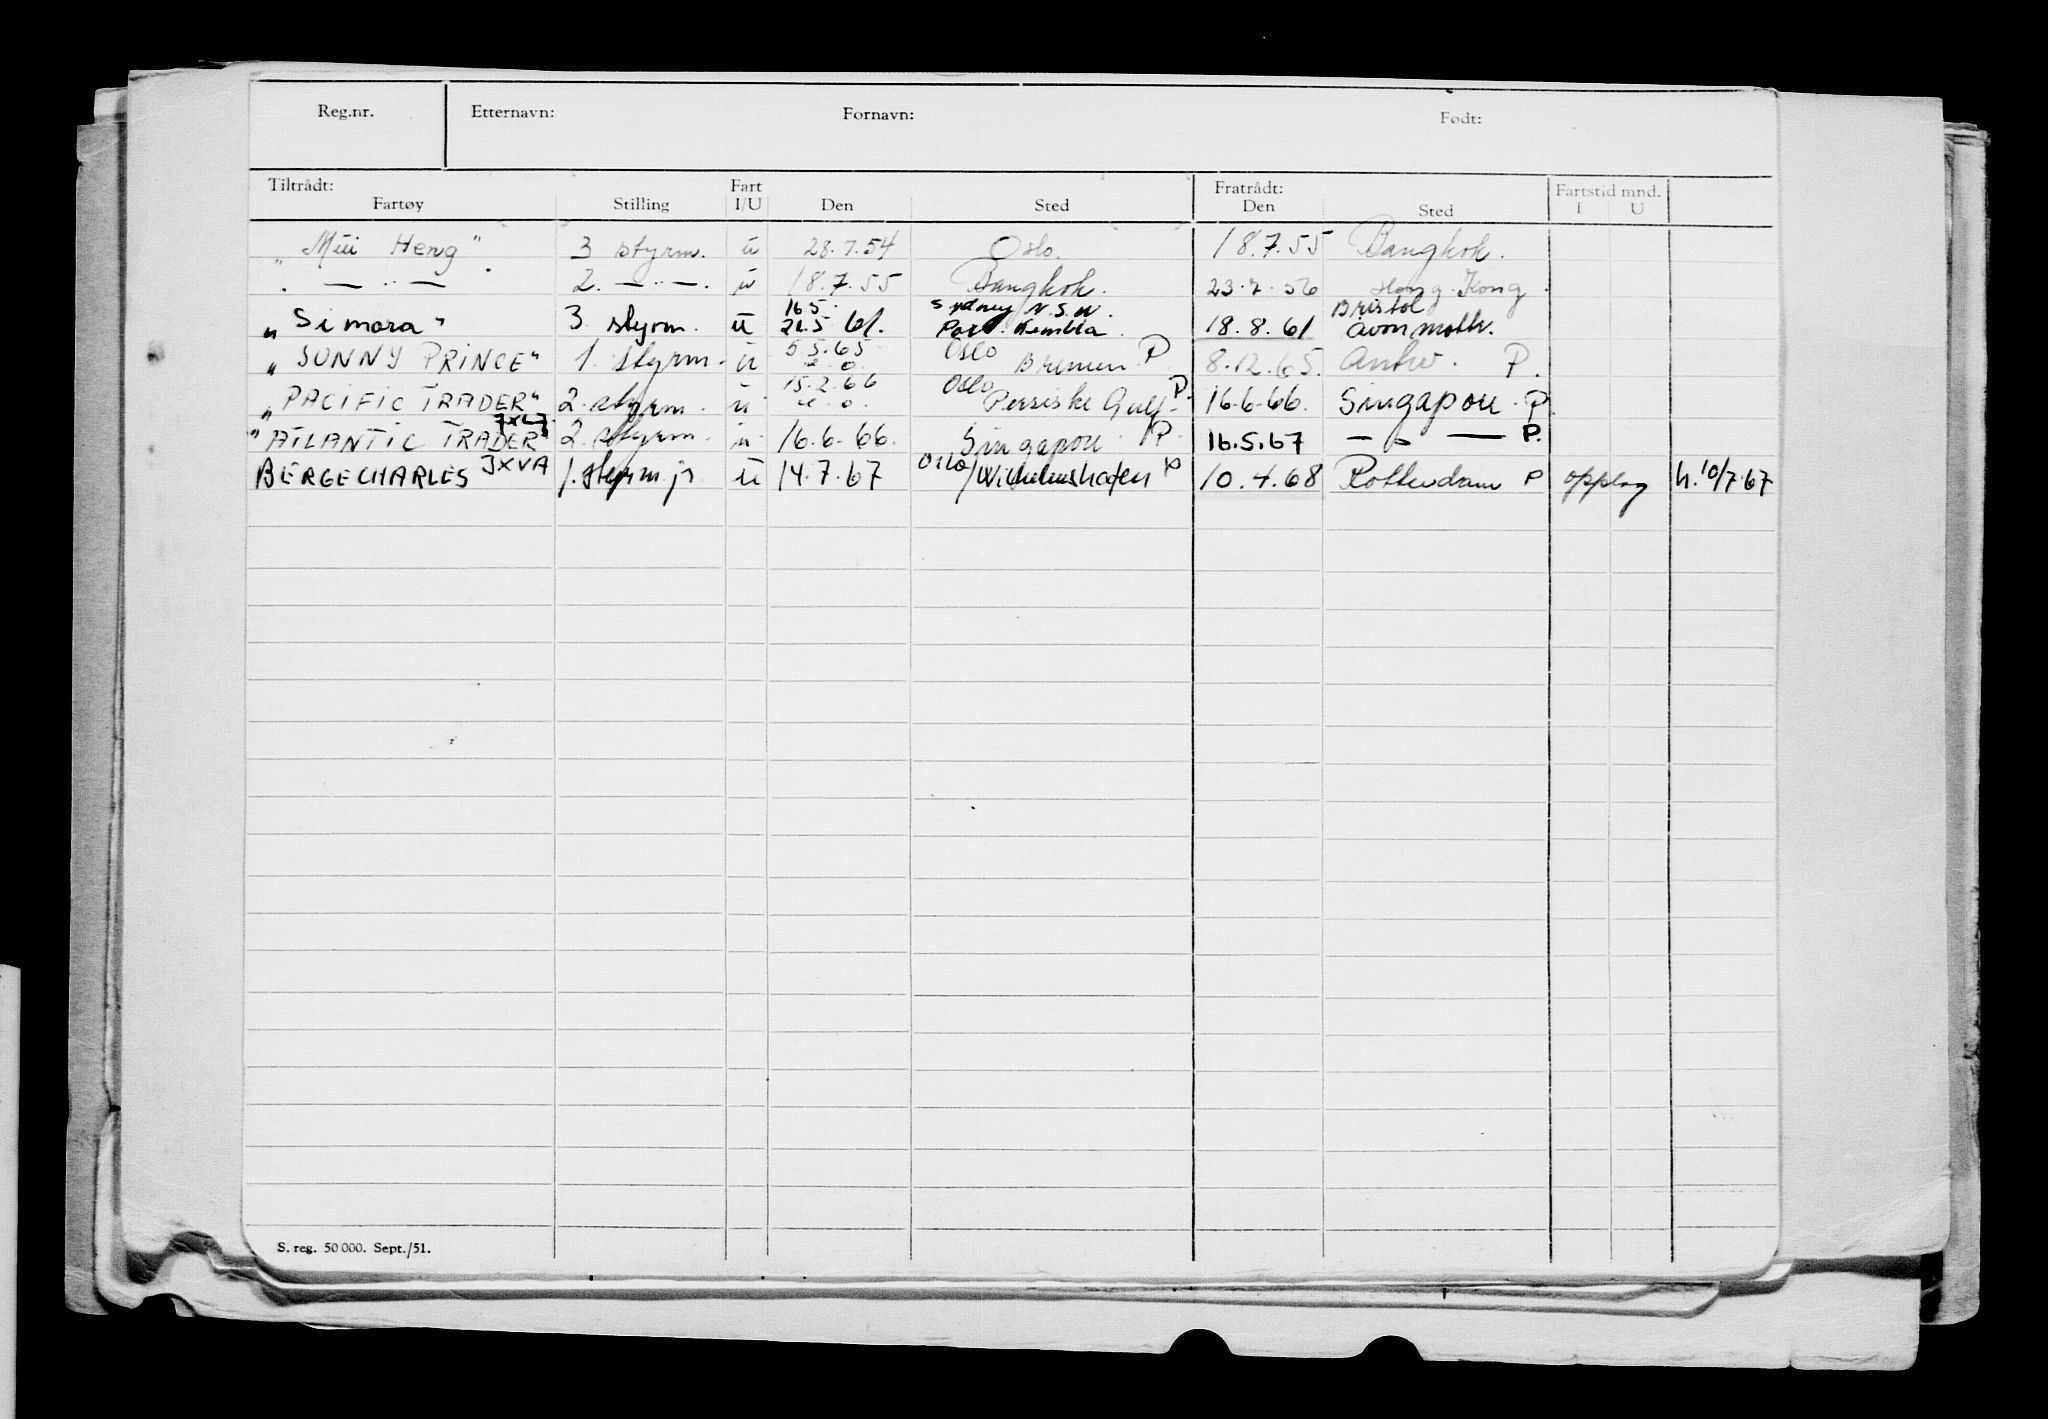 Reg.nr. Etternavn: Fornavn: Født:
Tiltrådt: Fart Fratrådt: Fartstid mnd.
Fartøy Stilling I/U Den Sted Den Sted I U
„Mui Heng" 3 styrm. u 28.7.54 Oslo. 18.7.55 Bangkok.
„ — " — 2. — " — . u 18.7.55 Bangkok. 23.7.56 Hong Kong.
16.5. Sydney N.S.W. Bristol
„Simara" 3 styrm. u 21.5 61. Port. Kembla. 18.8.61 Avonmoth.
5.5.65 Oslo
„SUNNY PRINCE" 1. styrm. u Bremen P 8.12.65. Antw. P.
15.2.66 Oslo
„PACIFIC TRADER" 2. styrm. u Persiske Gulf P. 16.6.66. Singapore. P.
„ATLANTIC TRADER" 2. styrm. u 16.6.66. Singapore. P. 16.5.67 — " — P.
BERGECHARLES JXVA 1. styrm. jr u 14.7.67 Oslo/Wilhelmshafen P 10.4.68 Rotterdam P opplag h. 10/7.67
S. reg. 50 000. Sept./51.